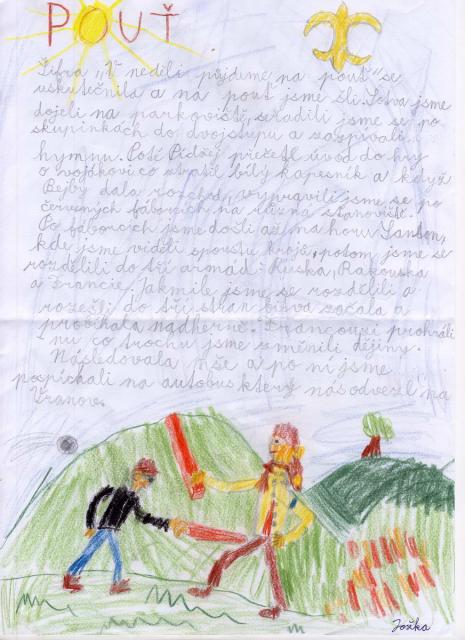 POUŤ
Šifra „V neděli půjdeme na pouť" se
uskutečnila a na pouť jsme šli. Sotva jsme
dojeli na parkoviště, seřadili jsme se po
skupinkách do dvojstupu a zazpívali
hymnu. Poté Pidžej přečetl úvod do hry
o vojákovi co ztratil bílý kapesník a když
Bejby dala rozchod, vypravili jsme se po
červených fáborcích na různá stanoviště.
Po fáborcích jsme došli až na horu Santon,
kde jsme viděli spoustu krojů, potom jsme se
rozdělili do tří armád: Ruska, Rakouska
a Francie. Jakmile jsme se rozdělili a
rozešli do tří stran bitva začala a
probíhala nádherně. Francouzi prohráli
nu co trochu jsme změnili dějiny.
Následovala mše a po ní jsme
pospíchali na autobus který nás odvezl na
Vranov.
Jožka